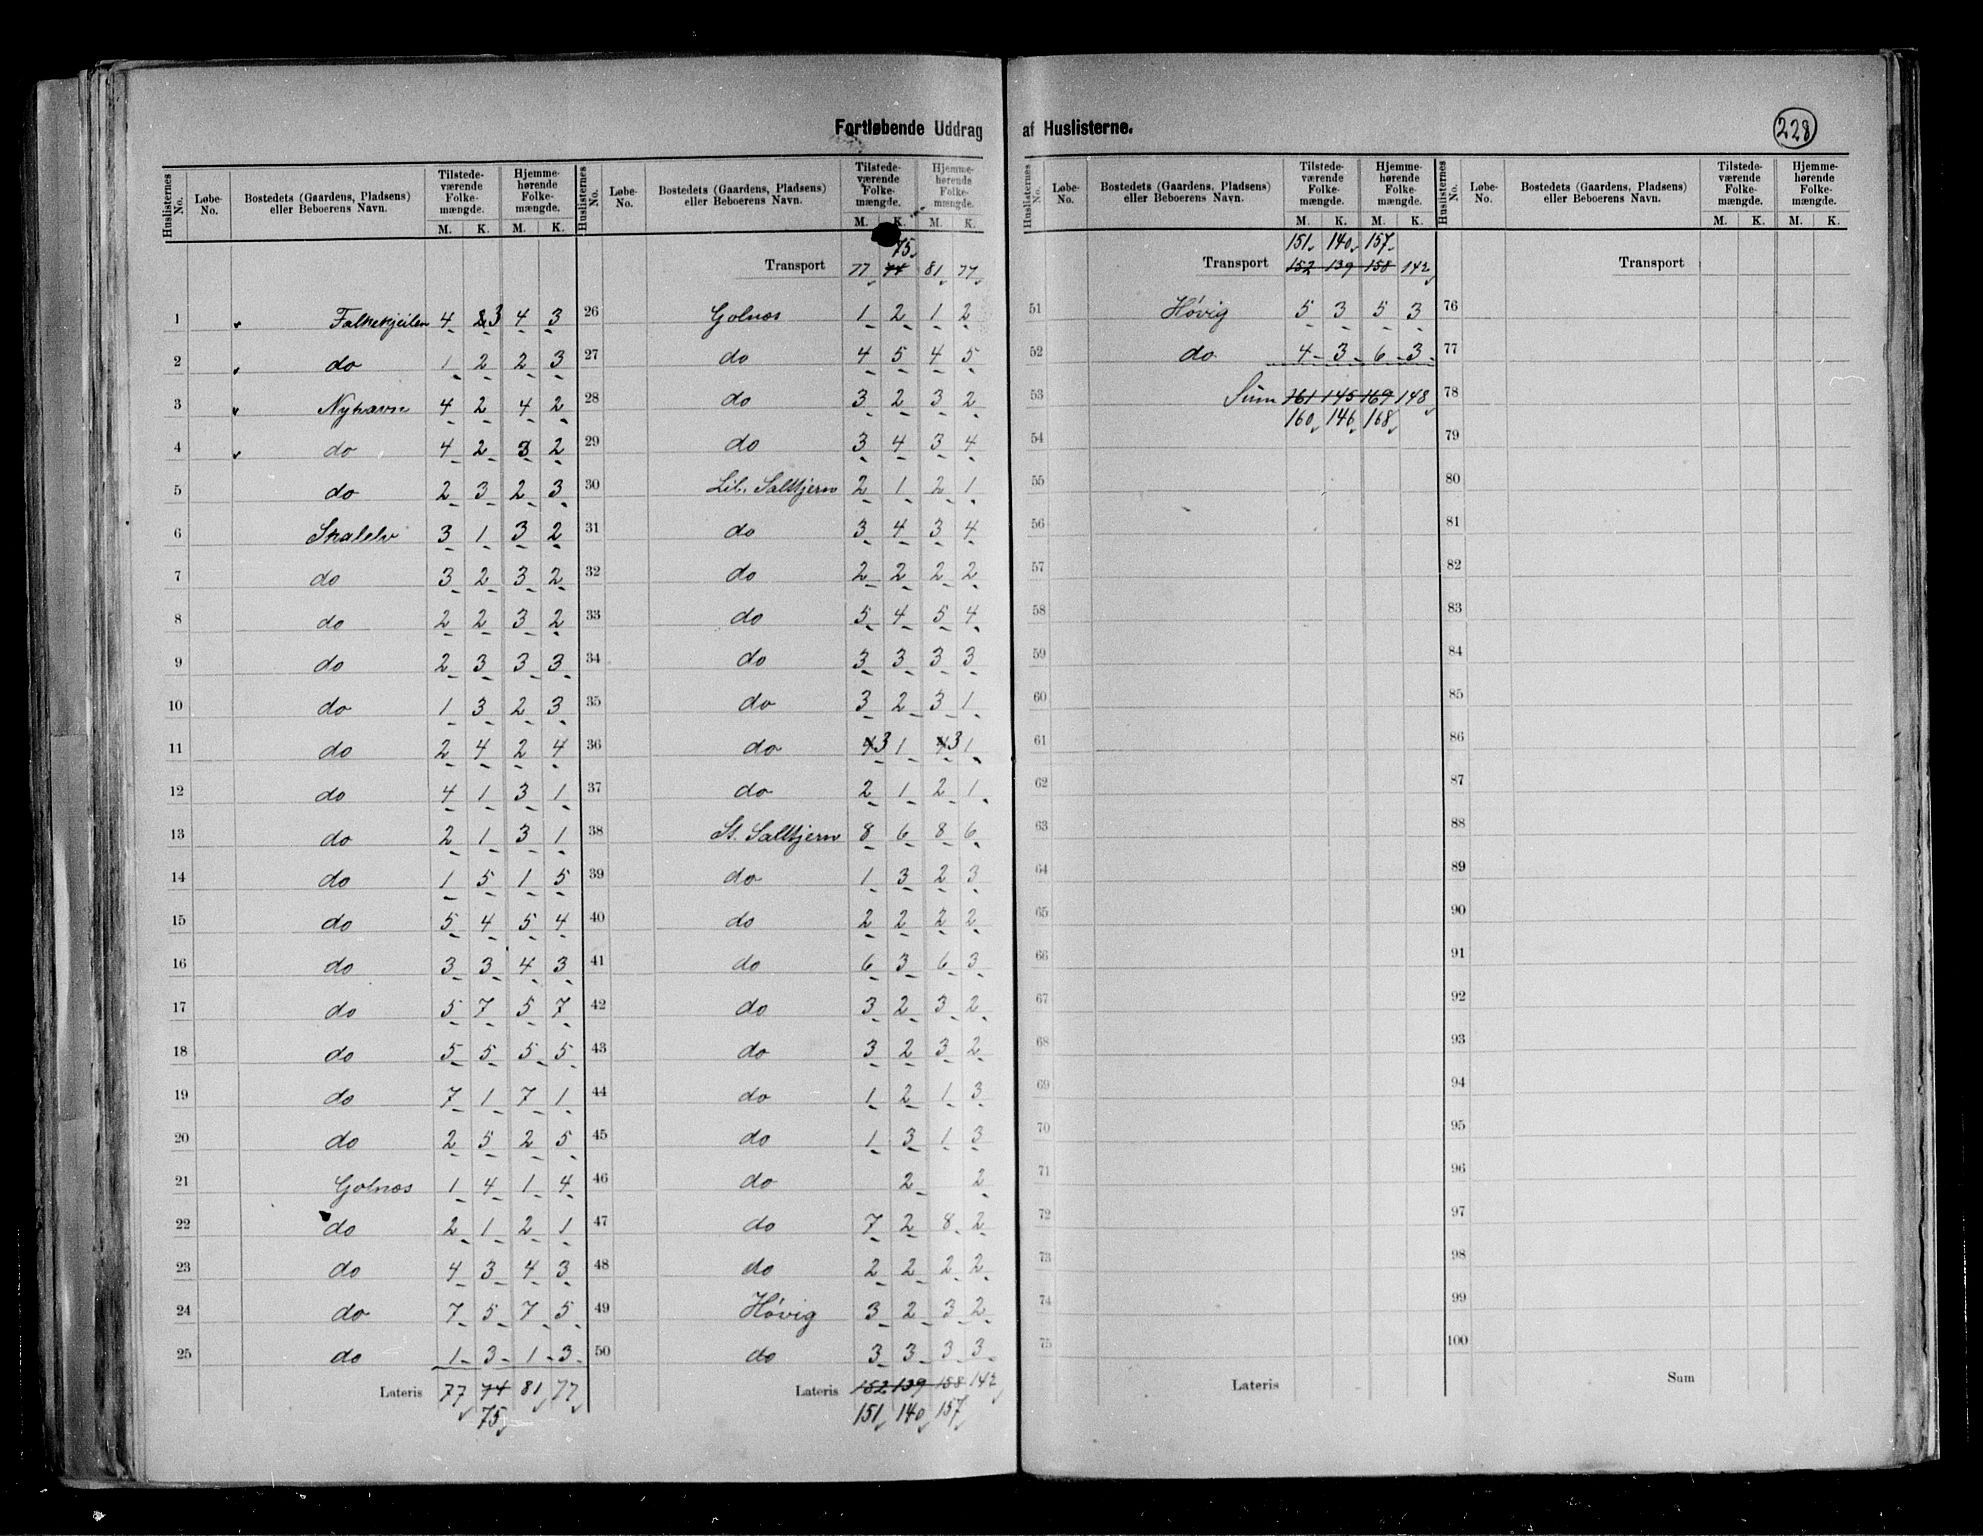 Fortløbende Uddrag af Huslisterne.
228
Huslisternes No. Løbe-No. Bostedets (Gaardens, Pladsens) eller Beboerens Navn. Tilstede-værende Folke-mængde. M. K. Hjemme-hørende Folke-mængde. M. K.
1 " Falkekjeilen 4 2 3 4 3
2 " do 1 2 2 3
3 " Nyhavn 4 2 4 2
4 " do 4 2 3 2
5 do 2 3 2 3
6 Skalelv 3 1 3 2
7 do 3 2 3 2
8 do 2 2 3 2
9 do 2 3 3 3
10 do 1 3 2 3
11 do 2 4 2 4
12 do 4 1 3 1
13 do 2 1 3 1
14 do 1 5 1 5
15 do 5 4 5 4
16 do 3 3 4 3
17 do 5 7 5 7
18 do 5 5 5 5
19 do 7 1 7 1
20 do 2 5 2 5
21 Golnæs 1 4 1 4
22 do 2 1 2 1
23 do 4 3 4 3
24 do 7 5 7 5
25 do 1 3 1 3
Lateris 77 74 81 77
75
Huslisternes No. Løbe-No. Bostedets (Gaardens, Pladsens) eller Beboerens Navn. Tilstede-værende Folke-mængde. M. K. Hjemme-hørende Folke-mængde. M. K.
75
Transport 77 74 81 77
26 Golnæs 1 2 1 2
27 do 4 5 4 5
28 do 3 2 3 2
29 do 3 4 3 4
30 Lil. Saltjern 2 1 2 1
31 do 3 4 3 4
32 do 2 2 2 2
33 do 5 4 5 4
34 do 3 3 3 3
35 do 3 2 3 1
36 do 4 3 1 4 3 1
37 do 2 1 2 1
38 St. Saltjern 8 6 8 6
39 do 1 3 2 3
40 do 2 2 2 2
41 do 6 3 6 3
42 do 3 2 3 2
43 do 3 2 3 2
44 do 1 2 1 3
45 do 1 3 1 3
46 do 2 2
47 do 7 2 8 2
48 do 2 2 2 2
49 Høvig 3 2 3 2
50 do 3 3 3 3
Lateris 152 139 158 142
151 140 157
Huslisternes No. Løbe-No. Bostedets (Gaardens, Pladsens) eller Beboerens Navn. Tilstede-værende Folke-mængde. M. K. Hjemme-hørende Folke-mængde. M. K.
151 140 157
Transport 152 139 158 142
51 Høvig 5 3 5 3
52 do 4 3 6 3
53 Sum 161 145 169 148
160 146 168
54
55
56
57
58
59
60
61
62
63
64
65
66
67
68
69
70
71
72
73
74
75
Lateris
Huslisternes No. Løbe-No. Bostedets (Gaardens, Pladsens) eller Beboerens Navn. Tilstede-værende Folke-mængde. M. K. Hjemme-hørende Folke-mængde. M. K.
Transport
76
77
78
79
80
81
82
83
84
85
86
87
88
89
90
91
92
93
94
95
96
97
98
99
100
Sum